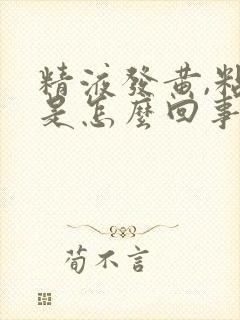 精液發黃,粘
是怎麼回事
荀不言